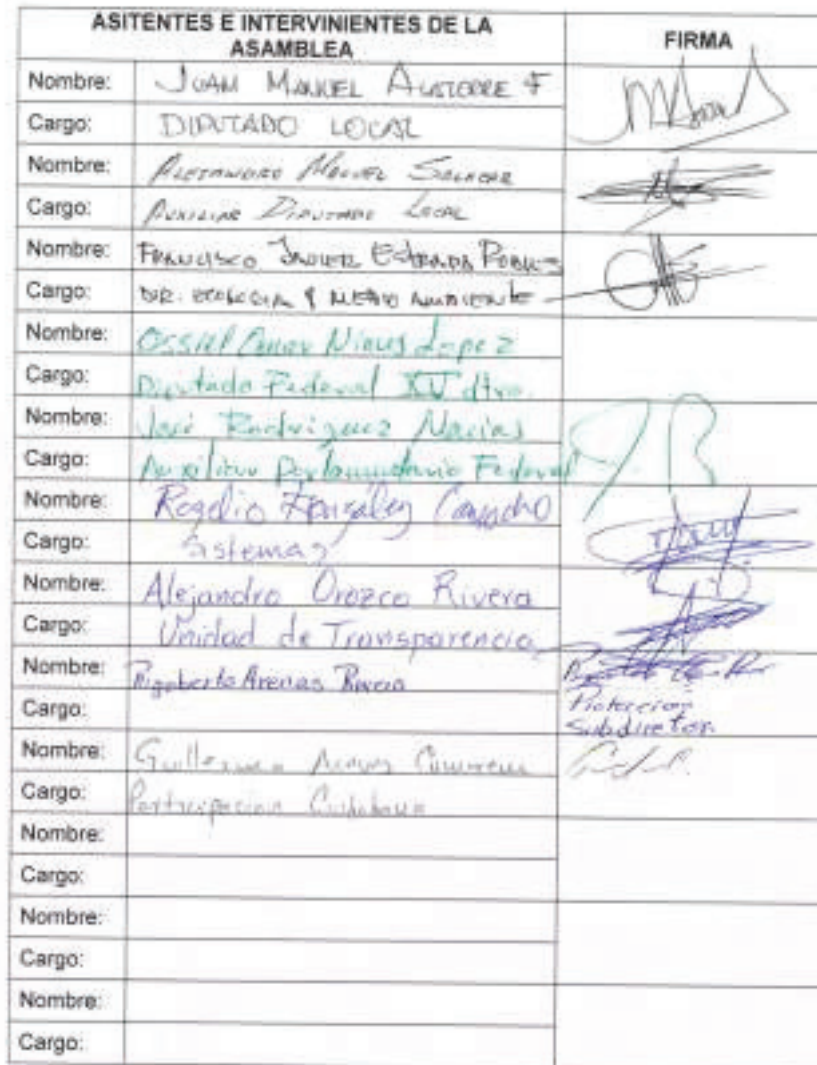 ASITENTES E INTERVINIENTES DE LA
ASAMBLEA
FIRMA
Nombre: JUAN MANUEL ALATORRE F
Cargo: DIPUTADO LOCAL
Nombre: ALEJANDRO MACIEL SALAZAR
Cargo: AUXILIAR DIPUTADO LOCAL
Nombre: FRANCISCO JAVIER ESTRADA ROBLES
Cargo: DIR. ECOLOGIA Y MEDIO AMBIENTE
Nombre: Ossiel Nieves Lopez
Cargo: Diputado Federal XV dtto.
Nombre: José Rodriguez Macias
Cargo: Auxiliar Parlamentario Federal
Nombre: Rogelio González Camacho
Cargo: Sistemas
Nombre: Alejandro Orozco Rivera
Cargo: Unidad de Transparencia
Nombre: Rigoberto Arenas
Cargo:
Proteccion
Subdiretor
Nombre: Guillermo
Cargo: Participacion Ciudadana
Nombre:
Cargo:
Nombre:
Cargo:
Nombre:
Cargo: